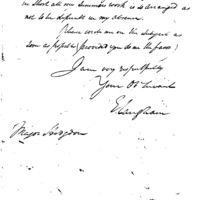 in short all our summer work is to be arranged as
not to be difficult in my absence.
Please write me on this subject as
soon as possible (provided you do on the pass)
I am very respectfully
Your Ob Servant
Major